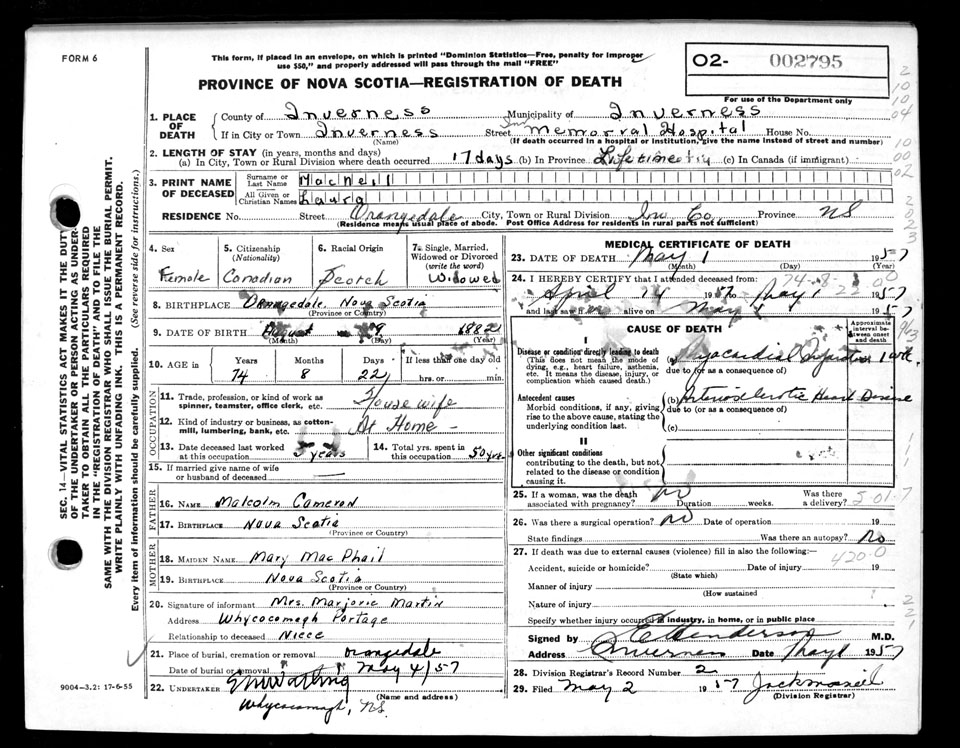 FORM 6
This form, if placed in an envelope, on which is printed "Dominion Statistics—Free, penalty for improper
use $50," and properly addressed will pass through the mail "FREE"
PROVINCE OF NOVA SCOTIA—REGISTRATION OF DEATH
O2- 002795
For use of the Department only
1. PLACE OF DEATH
County of Inverness Municipality of Inverness
If in City or Town Inverness Street Memorial Hospital House No.
(Name) (If death occurred in a hospital or institution, give the name instead of street and number)
2. LENGTH OF STAY (in years, months and days)
(a) In City, Town or Rural Division where death occurred 17 days (b) In Province Lifetime (c) In Canada (if immigrant)
3. PRINT NAME OF DECEASED
Surname or Last Name MacNeil
All Given or Christian Names Laura
RESIDENCE No. Street Orangedale City, Town or Rural Division Inv Co Province NS
(Residence means usual place of abode. Post Office Address for residents in rural parts not sufficient)
4. Sex Female
5. Citizenship (Nationality) Canadian
6. Racial Origin Scotch
7. Single, Married, Widowed or Divorced (write the word) Widowed
8. BIRTHPLACE Orangedale, Nova Scotia
(Province or Country)
9. DATE OF BIRTH August 9 1882
(Month) (Day) (Year)
10. AGE in Years 74 Months 8 Days 22 If less than one day old hrs. or min.
OCCUPATION
11. Trade, profession, or kind of work as spinner, teamster, office clerk, etc. Housewife
12. Kind of industry or business, as cotton-mill, lumbering, bank, etc. At Home
13. Date deceased last worked at this occupation years
14. Total yrs. spent in this occupation 50 yrs.
15. If married give name of wife or husband of deceased
FATHER
16. NAME Malcolm Cameron
17. BIRTHPLACE Nova Scotia
(Province or Country)
MOTHER
18. MAIDEN NAME Mary MacPhail
19. BIRTHPLACE Nova Scotia
(Province or Country)
20. Signature of informant Mrs. Marjorie Martin
Address Whycocomagh Portage
Relationship to deceased Niece
21. Place of burial, cremation or removal Orangedale
Date of burial or removal May 4/57
22. UNDERTAKER
(Name and address)
Whycocomagh, NS.
MEDICAL CERTIFICATE OF DEATH
23. DATE OF DEATH May 1 1957
(Month) (Day) (Year)
24. I HEREBY CERTIFY that I attended deceased from:
April 14 1957 to May 1 1957
and last saw h alive on May 1957
CAUSE OF DEATH
Approximate interval between onset and death
I
Disease or condition directly leading to death
(This does not mean the mode of dying, e.g., heart failure, asthenia, etc. It means the disease, injury, or complication which caused death.)
(a) Myocardial Infarction
due to (or as a consequence of)
Antecedent causes
Morbid conditions, if any, giving rise to the above cause, stating the underlying condition last.
(b) Arteriosclerotic Heart Disease
due to (or as a consequence of)
(c)
II
Other significant conditions
contributing to the death, but not related to the disease or condition causing it.
25. If a woman, was the death associated with pregnancy? No Duration weeks. Was there a delivery?
5-01-7
26. Was there a surgical operation? No Date of operation 19
State findings Was there an autopsy? No
27. If death was due to external causes (violence) fill in also the following:—
420-0
Accident, suicide or homicide? Date of injury 19
(State which)
Manner of injury
(How sustained)
Nature of injury
Specify whether injury occurred in industry, in home, or in public place
Signed by Henderson M.D.
Address Inverness Date May 1 1957
28. Division Registrar's Record Number 2
29. Filed May 2 1957
(Division Registrar)
SEC. 14—VITAL STATISTICS ACT MAKES IT THE DUTY
OF THE UNDERTAKER OR PERSON ACTING AS UNDER-
TAKER TO OBTAIN ALL THE PARTICULARS REQUIRED
IN THE "REGISTRATION OF DEATH" AND TO FILE THE
SAME WITH THE DIVISION REGISTRAR WHO SHALL ISSUE THE BURIAL PERMIT.
WRITE PLAINLY WITH UNFADING INK. THIS IS A PERMANENT RECORD.
Every item of information should be carefully supplied. (See reverse side for instructions.)
9004—3.2: 17-6-55